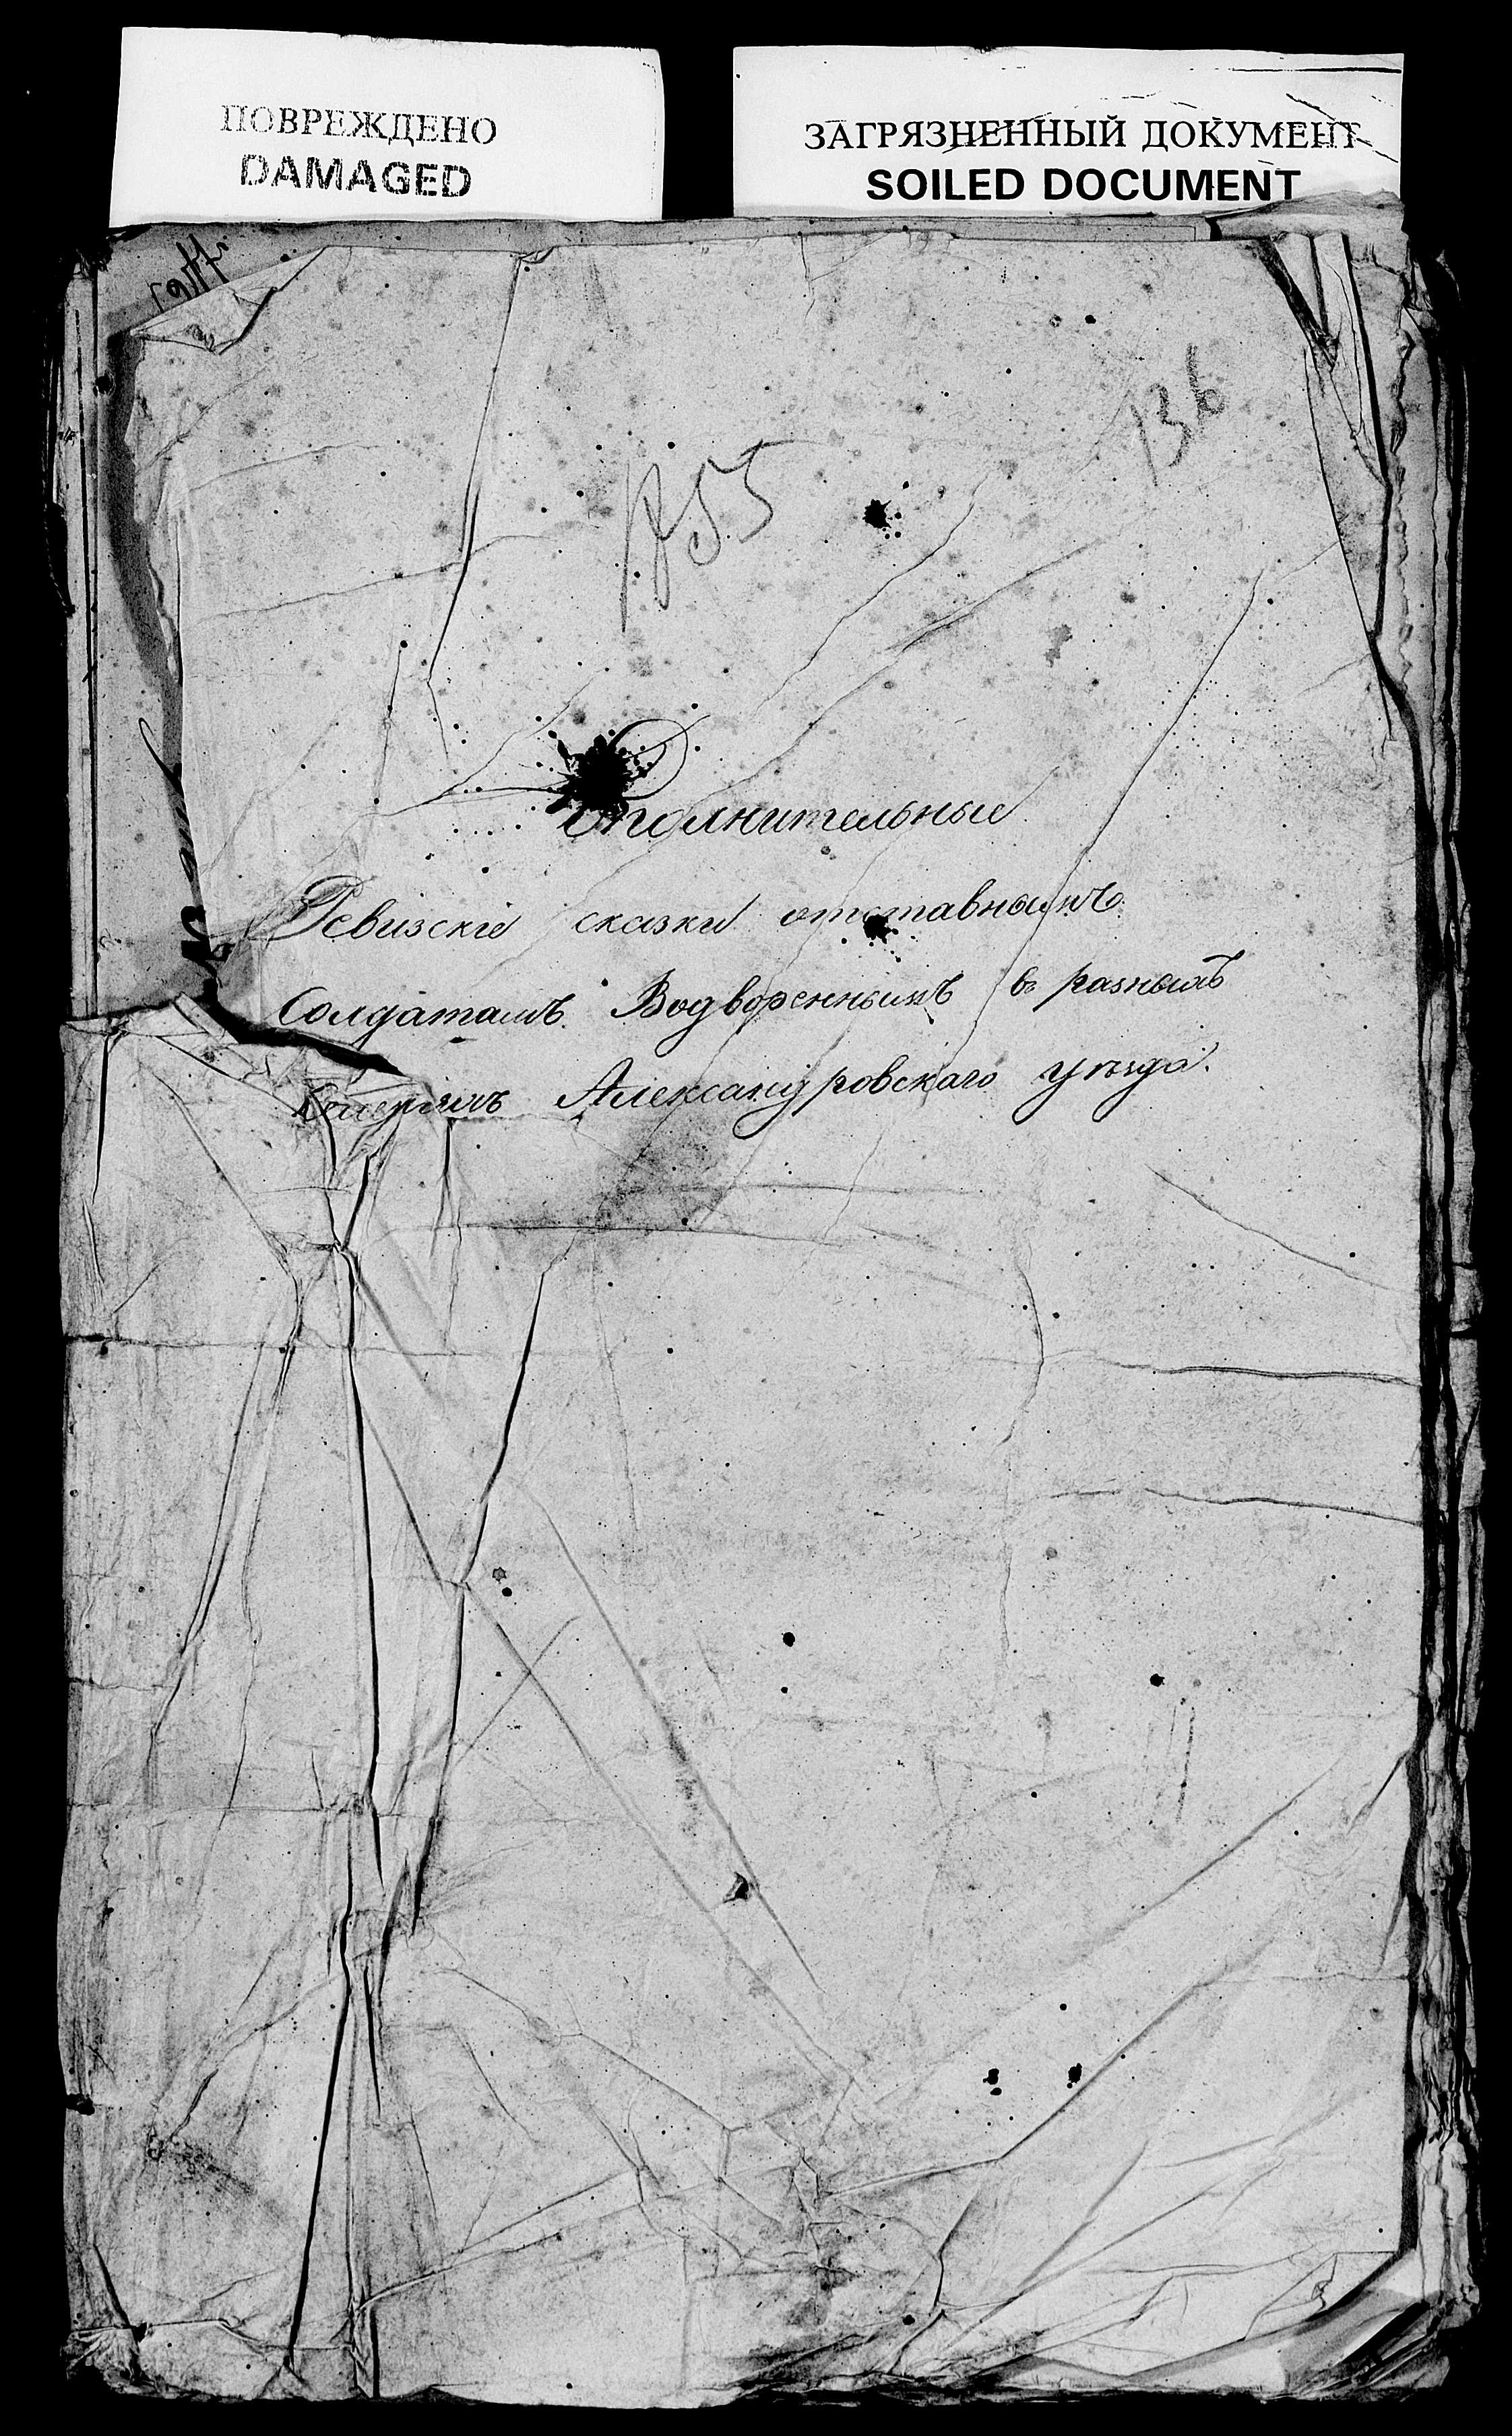 ПОВРЕЖДЕНО
DAMAGED
ЗАГРЯЗНЕННЫЙ ДОКУМЕНТ
SOILED DOCUMENT
136
Дополнительные
Ревизскіе сказки отставнымъ
Солдатамъ Водвореннымъ въ разныхъ
Александровскаго уѣзда.